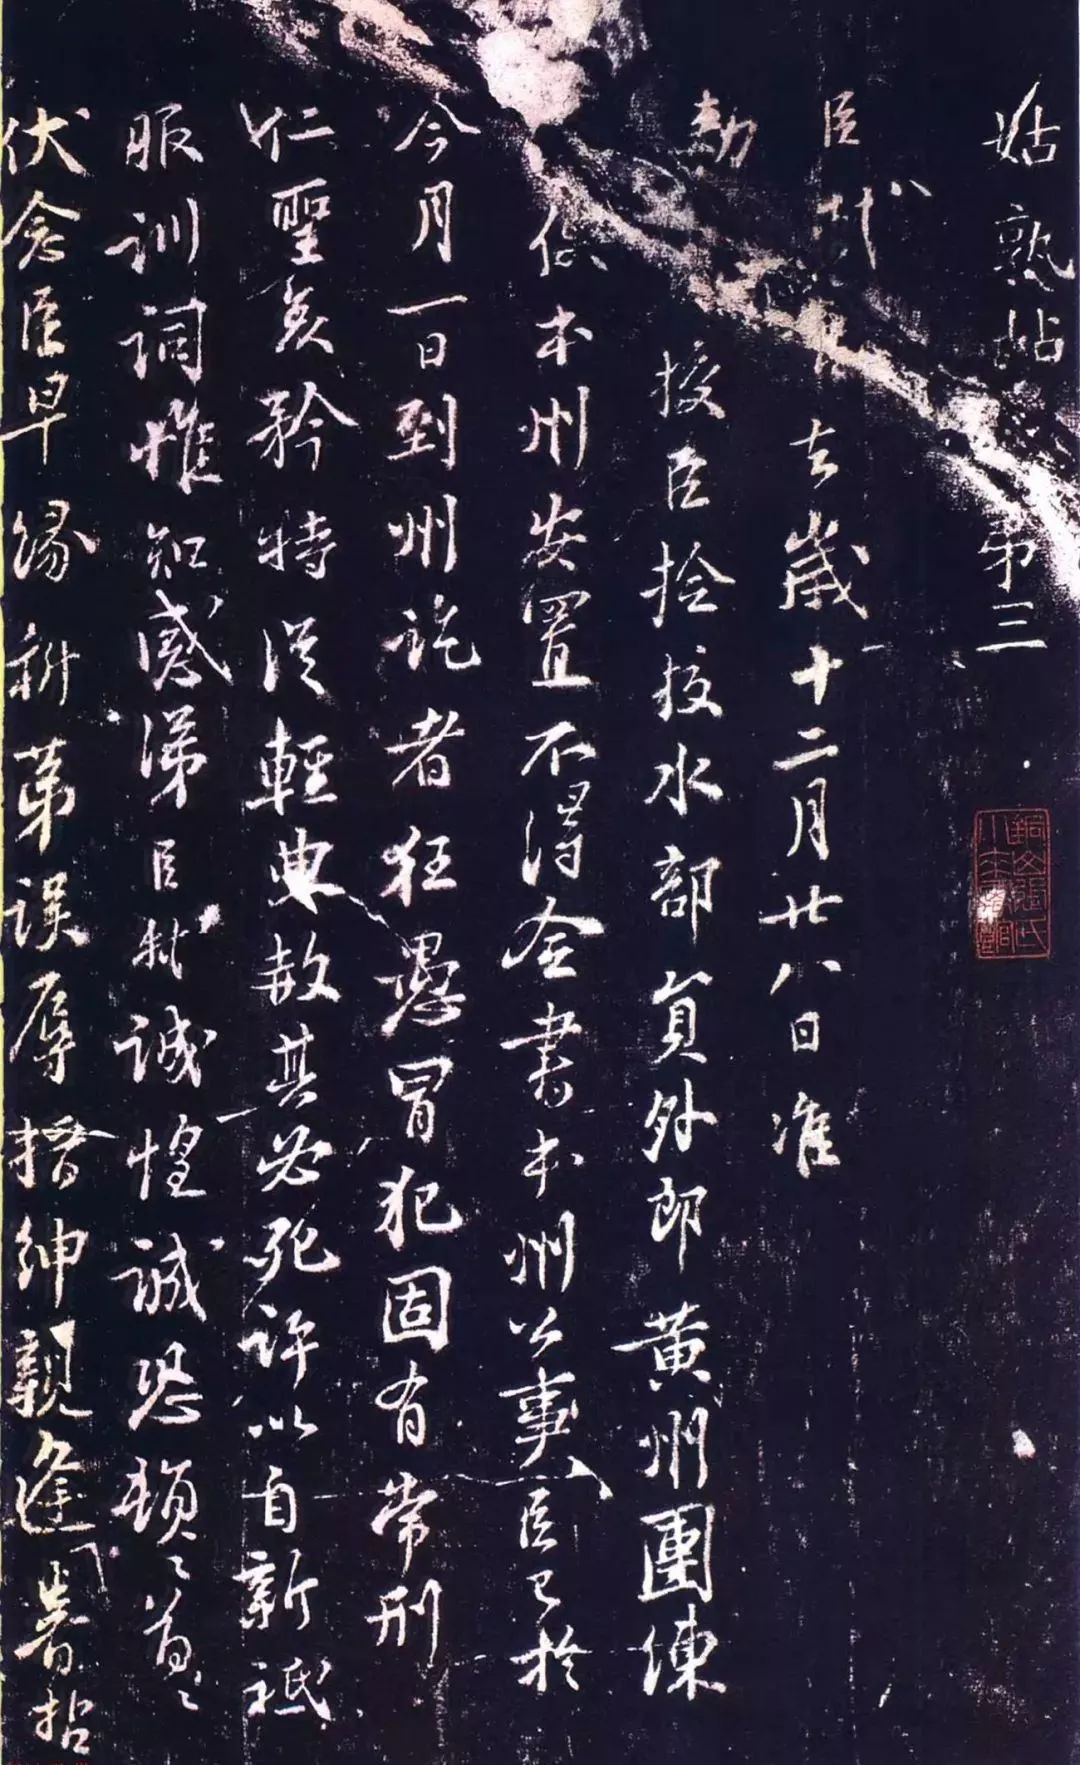 姑熟帖 第三
臣軾言去歲十二月廿八日准
勅
授臣撿挍水部員外郎黃州團練
使本州安置不得佥書本州公事臣已於
今月一日到州訖者狂愚冒犯固有常刑
仁聖哀矜特從輕典赦其必死許以自新祗
服訓詞惟知感涕臣軾誠惶誠恐頓〻首〻
伏念臣早緣科第誤辱搢紳親逢睿哲
銅山張氏